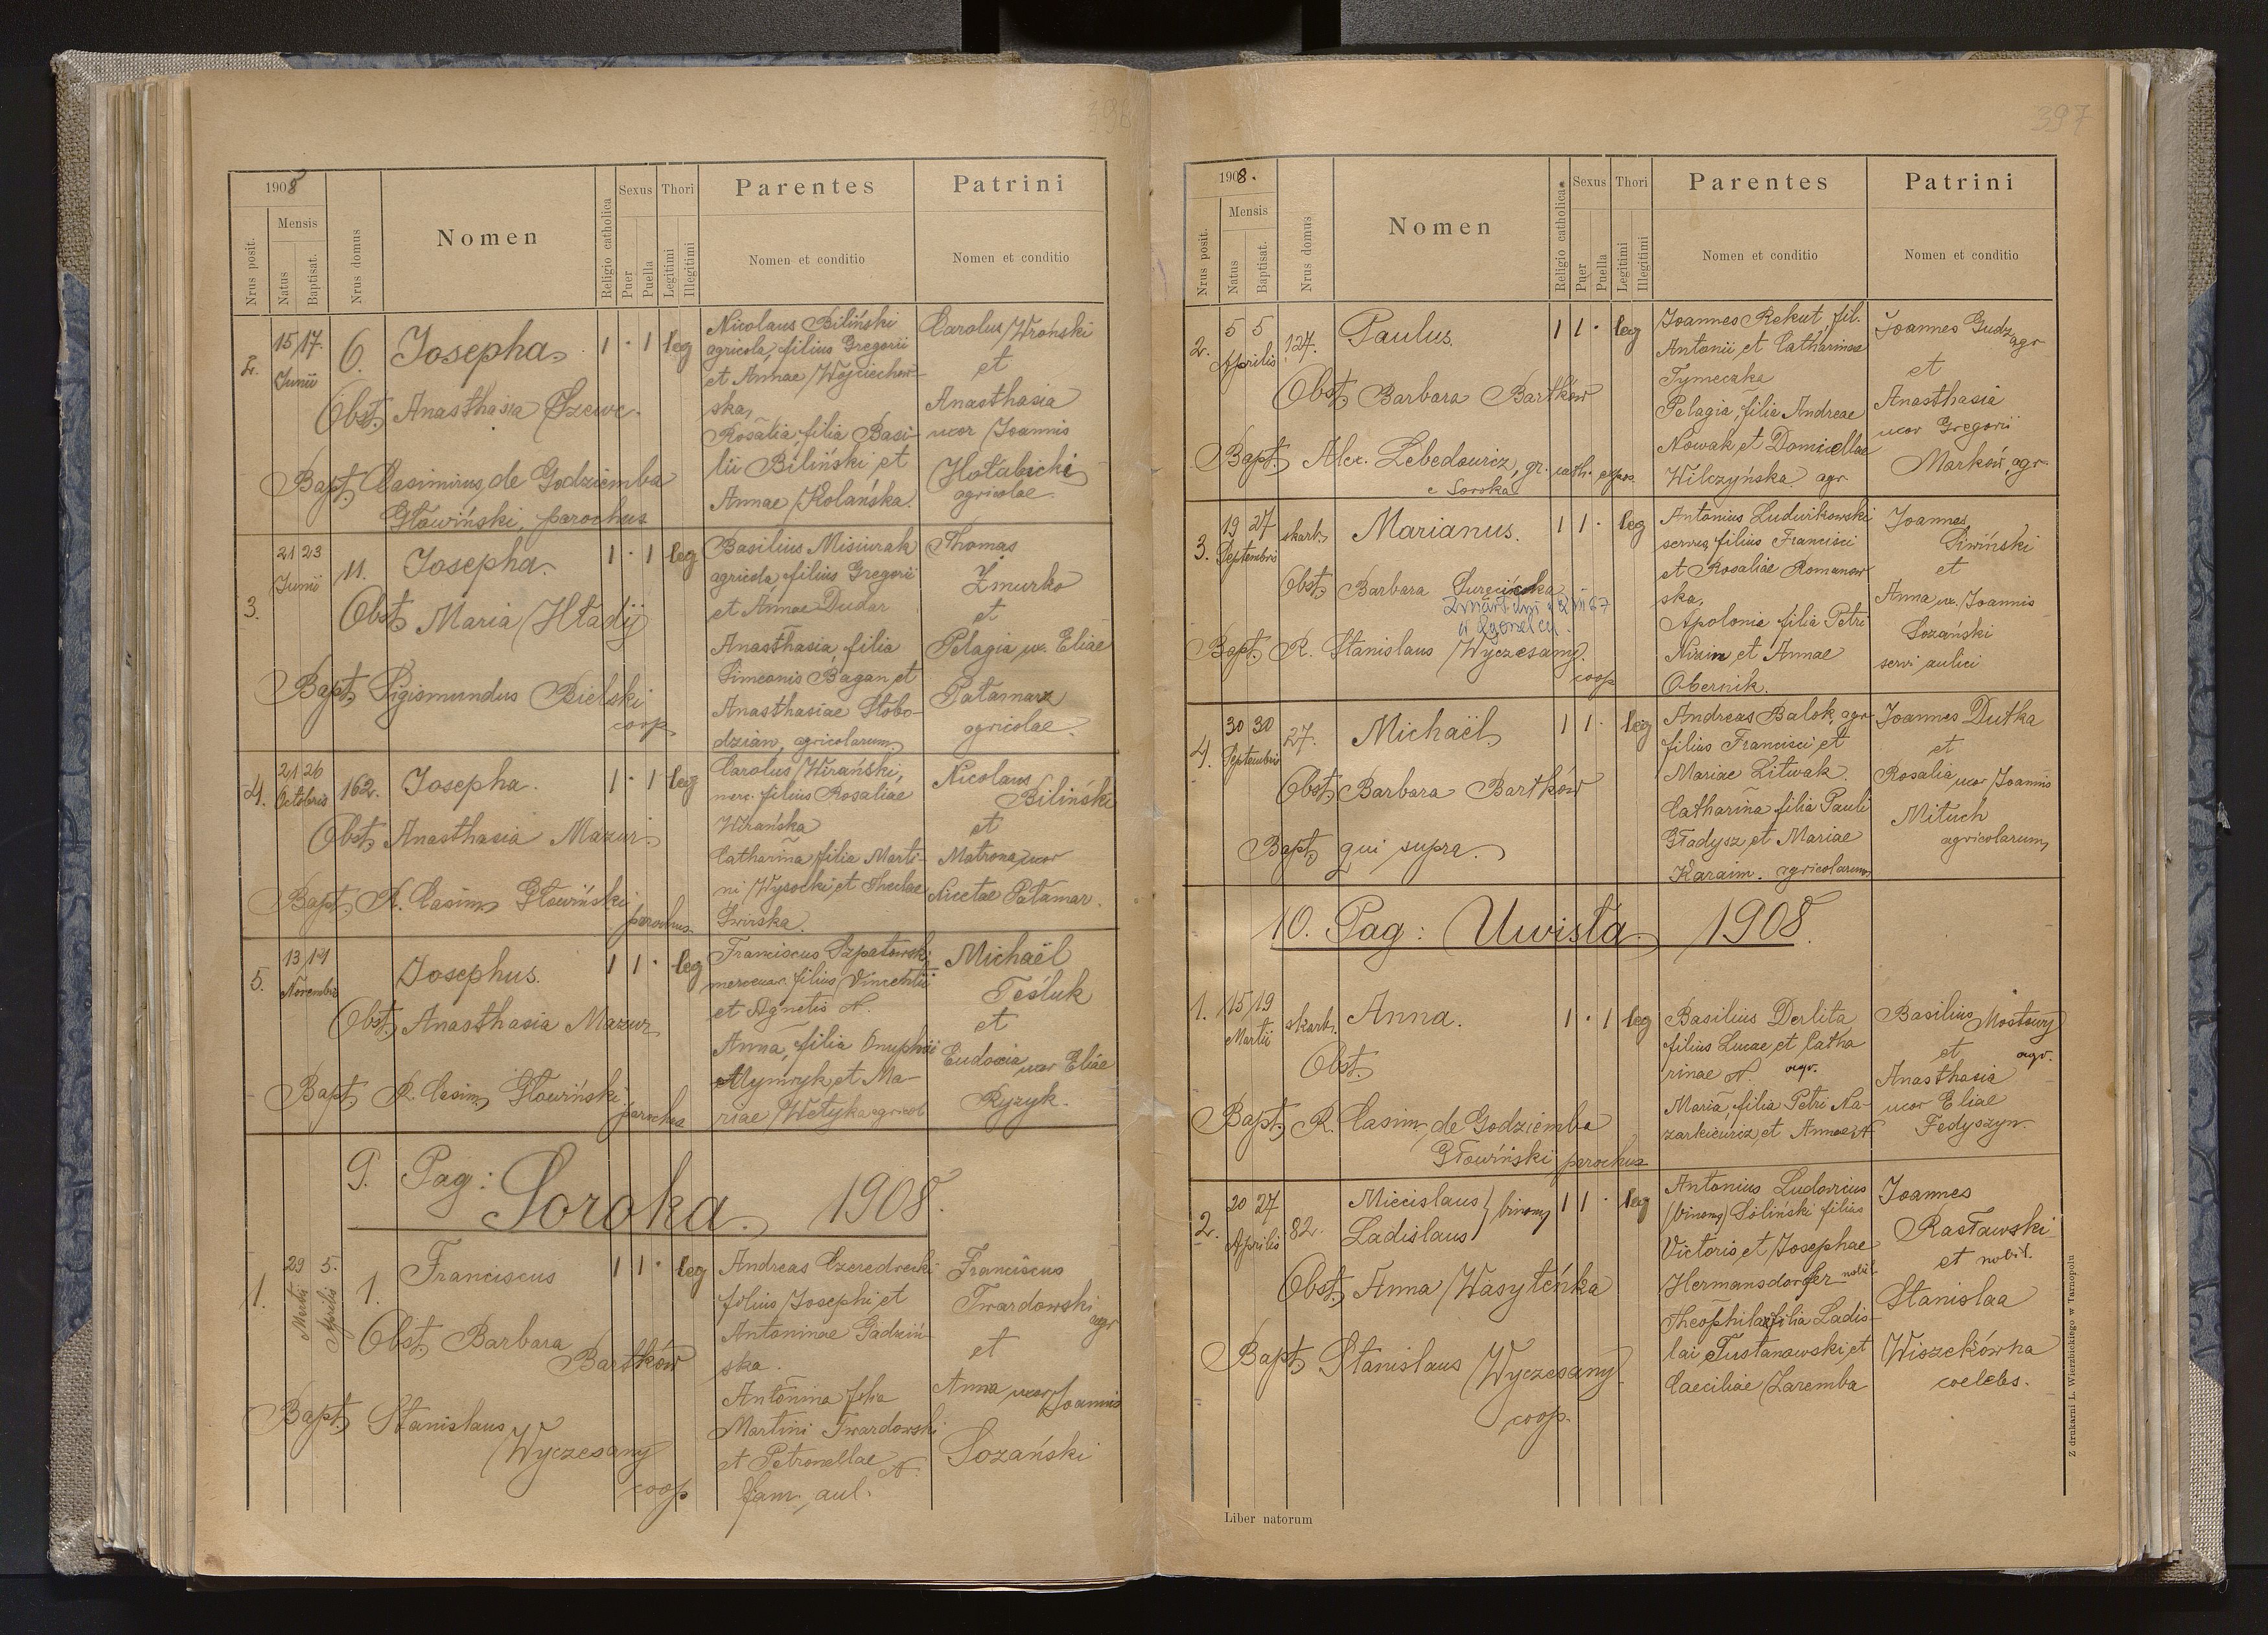 396
1908
Nrus posit.
Mensis
Natus
Baptisat.
Nrus domus
Nomen
Religio catholica
Sexus
Puer
Puella
Thori
Legitimi
Illegitimi
Parentes
Nomen et conditio
Patrini
Nomen et conditio
2. 15 17. Junii 6. Josepha 1 · 1 leg
Obst. Anasthasia Szewc.
Bapt. Casimirus de Godziemba
Głowiński, parochus
Nicolaus Biliński
agricola, filius Gregorii
et Annae Wojciechow-
ska,
Rosalia, filia Basi-
lii Biliński et
Annae Kolańska.
Carolus Wroński
et
Anasthasia
uxor Joannis
Hołabicki
agricolae.
3. 21 23 Junii 11. Josepha. 1 · 1 leg
Obst. Maria Hładij
Bapt. Sigismundus Bielski
coop.
Basilius Misiurak
agricola, filius Gregorii
et Annae Dudar
Anasthasia, filia
Simeonis Bagan et
Anasthasiae Słobo-
dzian, agricolarum
Thomas
Żmurko
et
Pelagia ux. Eliae
Patamarz
agricolae.
4. 21 26 Octobris 162. Josepha. 1 · 1 leg
Obst. Anasthasia Mazur.
Bapt. R. Casim. Głowiński
parochus
Carolus Wirański,
merc. filius Rosaliae
Wirańska
Catharina filia Marti-
ni Wysocki et Theclae
Świrska.
Nicolaus
Biliński
et
Matrona uxor
Nicetae Patamar.
5. 13 14 Novembris Josephus. 1 1 · leg
Obst. Anasthasia Mazur
Bapt. R. Casim. Głowiński
parochus
Franciscus Szpatowski
mercenar. filius Vincentii
et Agnetis N.
Anna, filia Onuphrii
et Ma-
riae Wetyka agricol
Michaël
Teśluk
et
Eudoxia uxor Eliae
Ryzyk.
9. Pag: Soroka. 1908.
1. 29 Martii 5. Aprilis 1. Franciscus 1 1 · leg
Obst. Barbara
Bartków
Bapt. Stanislaus
Wyczesany
coop
Andreas Czeredrecki
filius Josephi et
Antoninae Gadziń-
ska.
Antonina filia
Martini Twardowski
et Petronellae N.
fam. aul.
Franciscus
Twardowski
agr
et
Anna uxor Joannis
Sozański
397
1908.
Nrus posit.
Mensis
Natus
Baptisat.
Nrus domus
Nomen
Religio catholica
Sexus
Puer
Puella
Thori
Legitimi
Illegitimi
Parentes
Nomen et conditio
Patrini
Nomen et conditio
2. 5 5 Aprilis 127. Paulus. 1 1 · leg
Obst. Barbara Bartków
Bapt. Alex. Lebedowicz, gr. cath. expos.
e Soroka
Joannes Rekut, fil.
Antonii et Catharinae
Tymeczka
Pelagia, filia Andreae
Nowak et Domicellae
Wilczyńska agr.
Joannes Gudz
agr
et
Anasthasia
uxor Gregorii
Marków, agr.
3. 19 27 Septembris skarb. Marianus. 1 1 · leg
Obst. Barbara
Bapt. R. Stanislaus Wyczesany.
coop
Antonius Ludwikowski
servus, filius Francisci
et Rosaliae Romanow
ska,
Apolonia filia Petri
Nizin et Annae
Obernik.
Joannes
Siwiński
et
Anna ux. Joannis
Sozański
servi aulici
4. 30 30 Septembris 27. Michaël 1 1 · leg
Obst. Barbara Bartków
Bapt. qui supra.
Andreas Balok, agr
filius Francisci et
Mariae Litwak.
Catharina filia Pauli
Gładysz et Mariae
Karaim. agricolarum
Joannes Dutka
et
Rosalia uxor Joannis
Mituch
agricolarum
10. Pag: Uwisła 1908.
1. 15 19 Martii skarb. Anna. 1 · 1 leg
Obst.
Bapt. R. Casim. de Godziemba
Głowiński parochus
Basilius Derlita
filius Lucae et Catha
rinae N. agr.
Maria, filia Petri Na-
zarkiewicz et Annae N
Basilius Mostowy
et agr.
Anasthasia
uxor Eliae
Fedyszyn.
2. 20 27 Aprilis 82. Miecislaus
Ladislaus } binom 1 1 · leg
Obst. Anna Wasyleńka
Bapt. Stanislaus Wyczesany.
coop.
Antonius Ludovicus
(binom) Soliński filius
Victoris et Josephae
Hermansdorfer nobil.
Theophila filia Ladis-
lai Tustanowski et
Caeciliae Zaremba
Joannes
Rasławski
et nobil.
Stanislaa
Wiszckówna
coelebs.
Liber natorum
Z drukarni L. Wierzbickiego w Tarnopolu